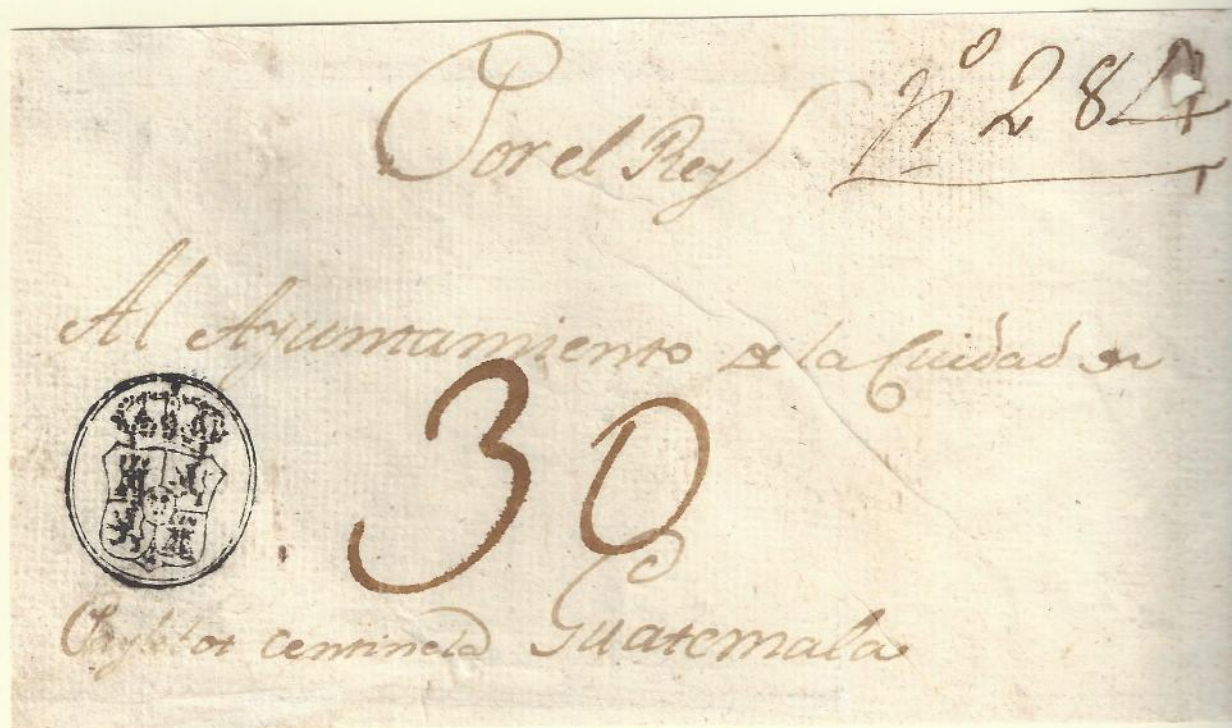 Por el Rey
nº 284
Al Ayuntamiento de la Cuidad de
30
Guatemala